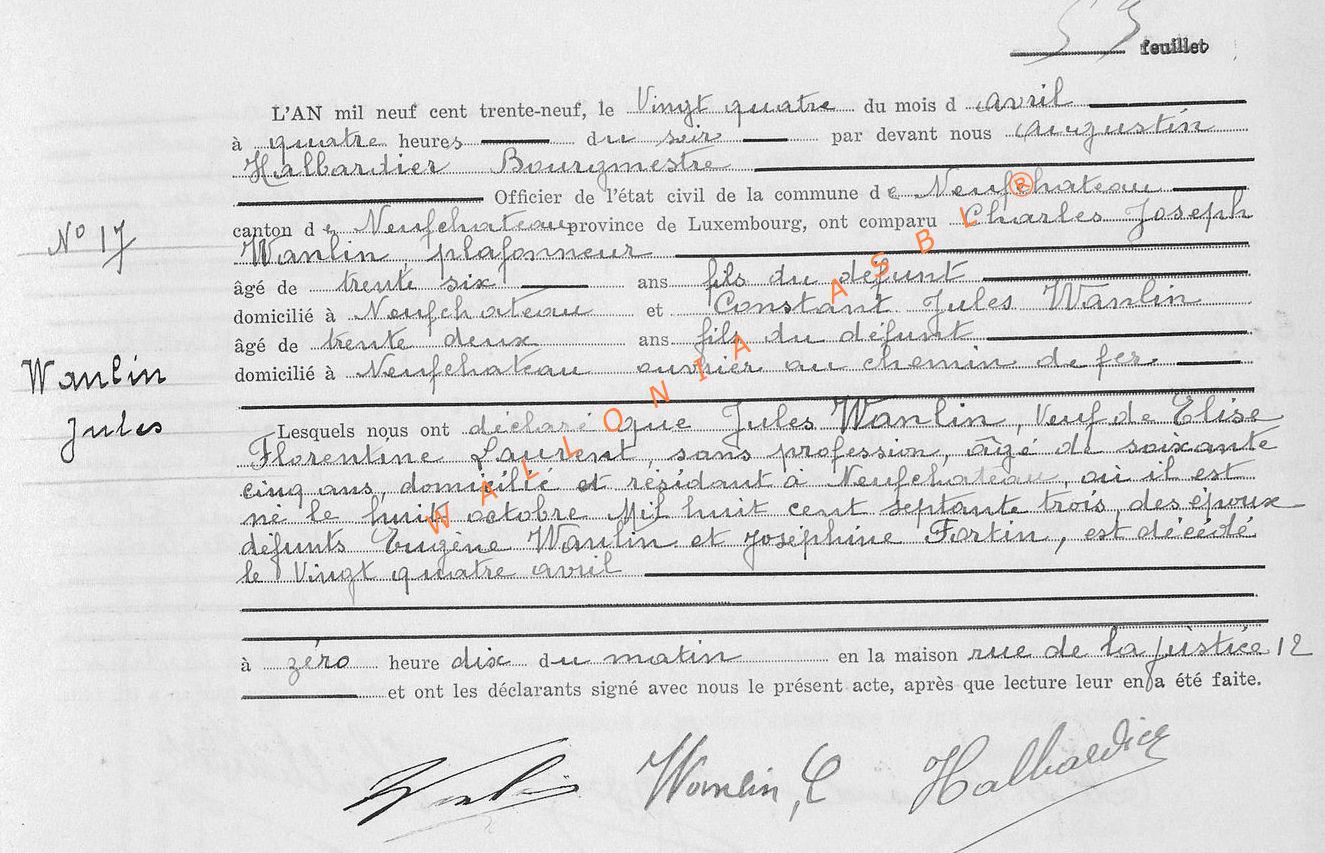 53 feuillet
L'AN mil neuf cent trente-neuf, le Vingt quatre du mois d avril
à quatre heures du soir par devant nous Augustin
Halbardier Bourgmestre
Officier de l'état civil de la commune de Neufchateau
canton de Neufchateau province de Luxembourg, ont comparu Charles Joseph
N° 17
Wanlin, plafonneur
âgé de trente six ans fils du défunt
domicilié à Neufchateau et Constant Jules Wanlin
âgé de trente deux ans fils du défunt
domicilié à Neufchateau ouvrier au chemin de fer.
Wanlin
Jules
Lesquels nous ont déclaré que Jules Wanlin, Veuf de Elise
Florentine Laurent, sans profession, âgé de soixante
cinq ans, domicilié et résidant à Neufchateau, où il est
né le huit octobre Mil huit cent septante trois, des époux
défunts Eugène Wanlin et Joséphine Fortin, est décédé
le Vingt quatre avril
à zéro heure dix du matin en la maison rue de la justice 12
et ont les déclarants signé avec nous le présent acte, après que lecture leur en a été faite.
Wanlin Wanlin, C Halbardier
WALLONIA ASBL ®